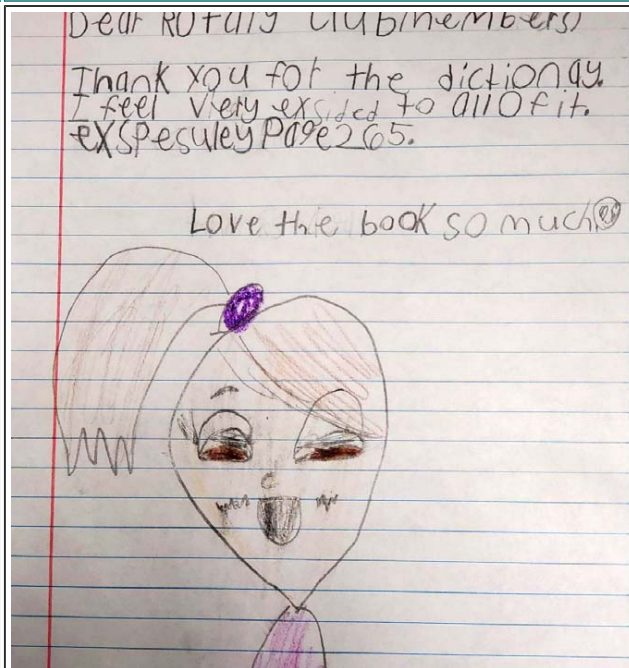 Dear Rotary Clubmembers,
Thank you for the dictionay.
I feel viery exsided to all of it.
exspesuley Page 265.
Love the book so much